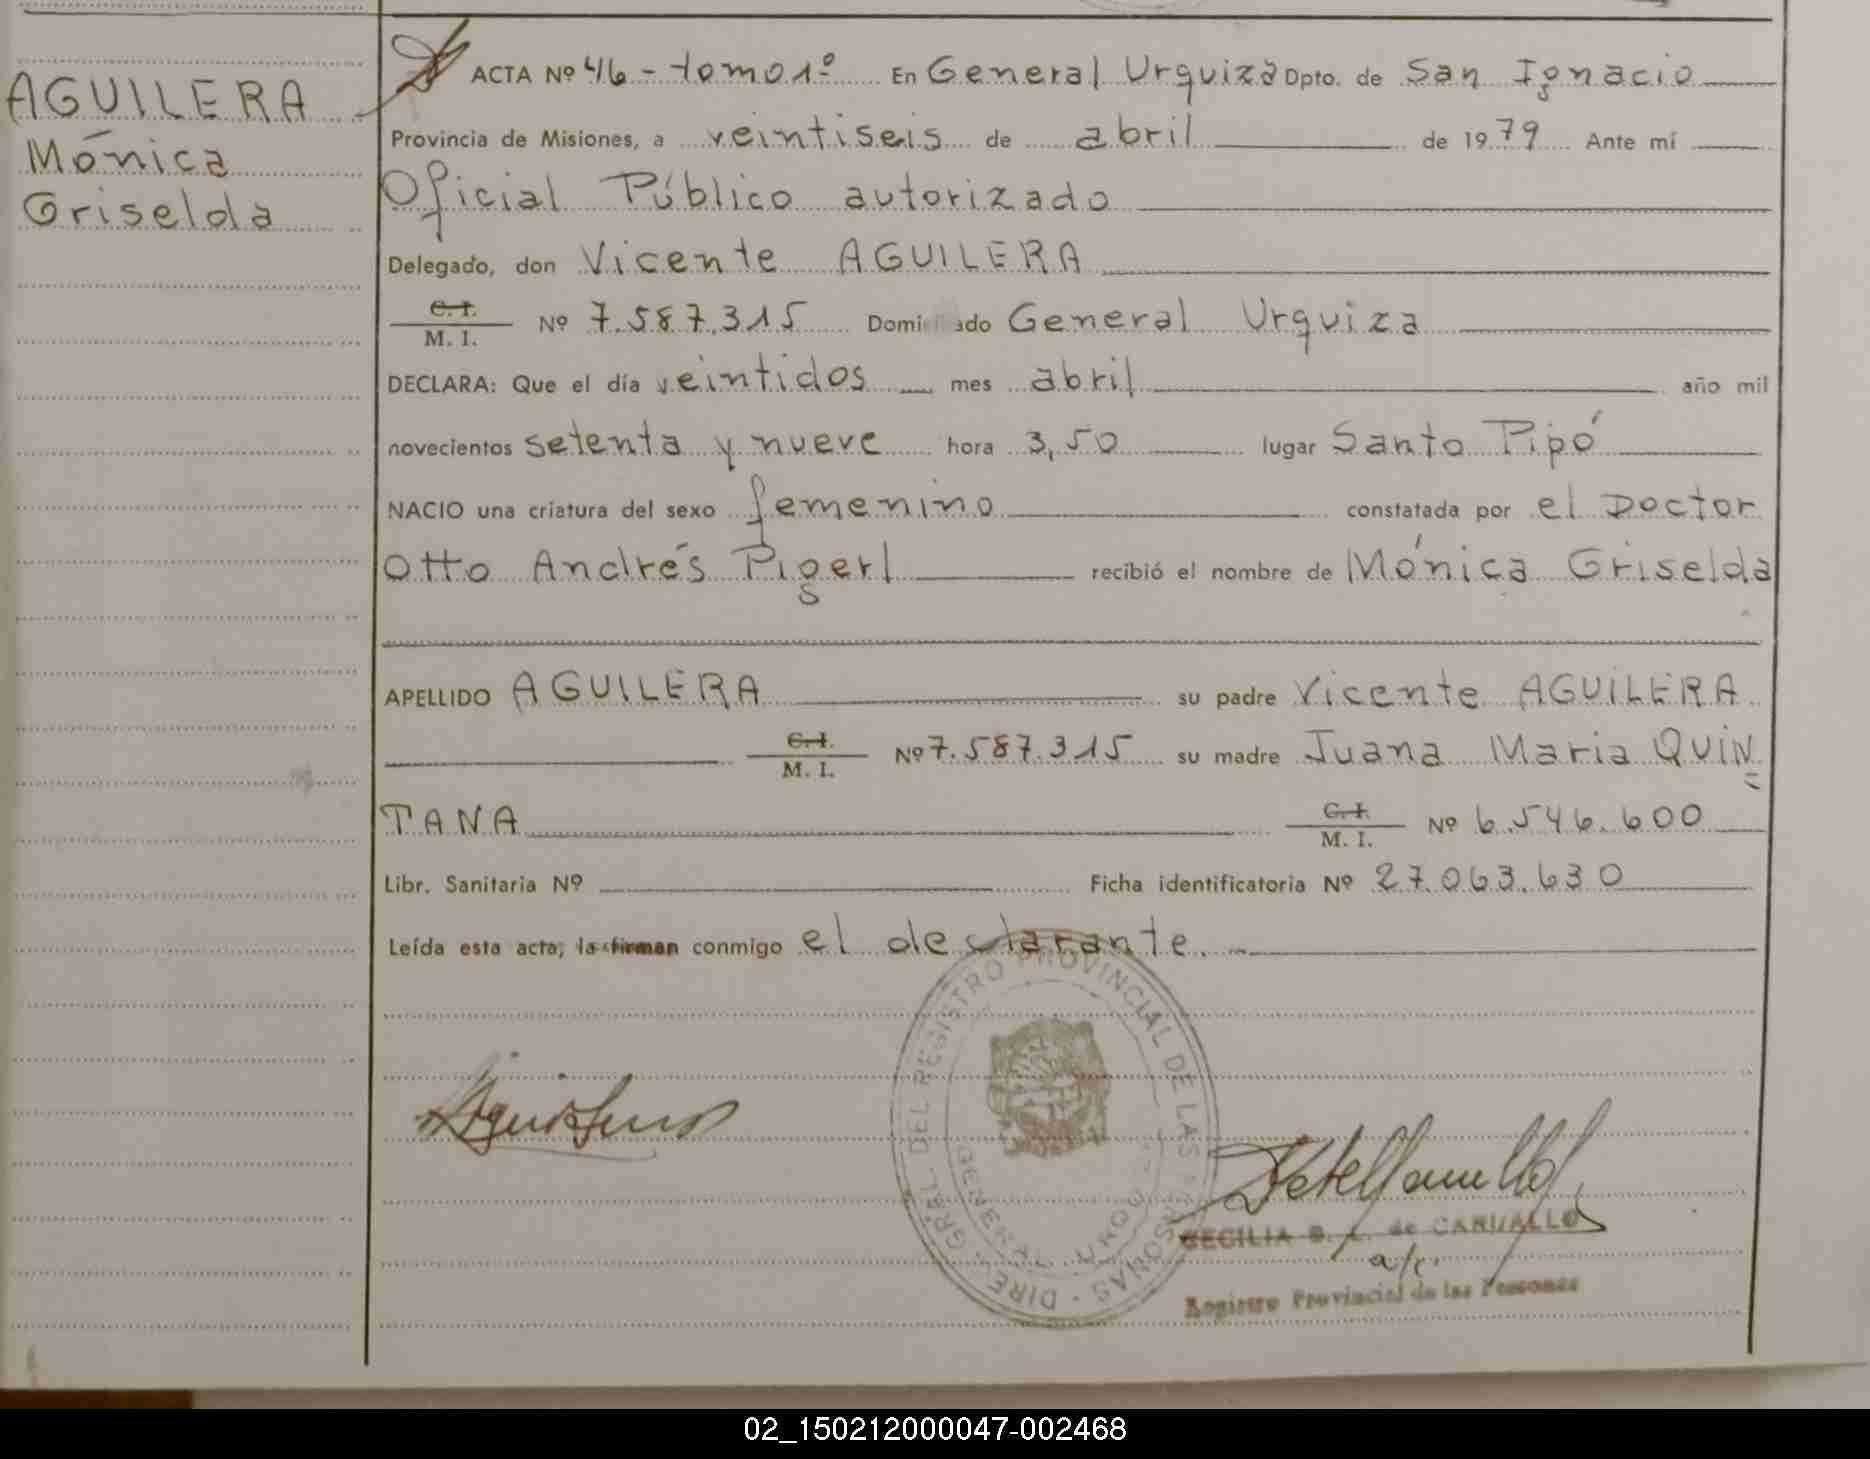 AGUILERA
Mónica
Griselda
ACTA Nº 46 - tomo 1º En General Urquiza Dpto. de San Ignacio
Provincia de Misiones, a veintiseis de abril de 1979 Ante mí
Oficial Público autorizado
Delegado, don Vicente AGUILERA
C. I.
M. I. Nº 7.587.315 Domiciliado General Urquiza
DECLARA: Que el día veintidos mes abril año mil
novecientos setenta y nueve hora 3,50 lugar Santo Pipó
NACIO una criatura del sexo femenino constatada por el Doctor
Otto Andrés Pigerl recibió el nombre de Mónica Griselda
APELLIDO AGUILERA su padre Vicente AGUILERA
C. I.
M. I. Nº 7.587.315 su madre Juana Maria QUIN
TANA C. I.
M. I. Nº 6.546.600
Libr. Sanitaria Nº Ficha identificatoria Nº 27.063.630
Leída esta acta, la firman conmigo el declarante.
DIRE. GRAL. DEL REGISTRO PROVINCIAL DE LAS PERSONAS
GENERAL URQUIZA
CECILIA B. L. de CARVALLO
a/c.
Registro Provincial de las Personas
02_150212000047-002468